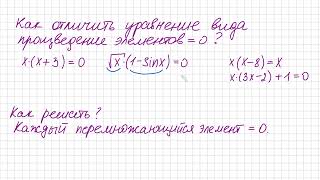 Как отличить уравнение вида
произведение элементов = 0 ?
x·(x+3) = 0 √x·(1-sinx)=0 x(x-8)=x
x·(3x-2)+1=0
Как решить?
Каждый перемножающийся элемент = 0.